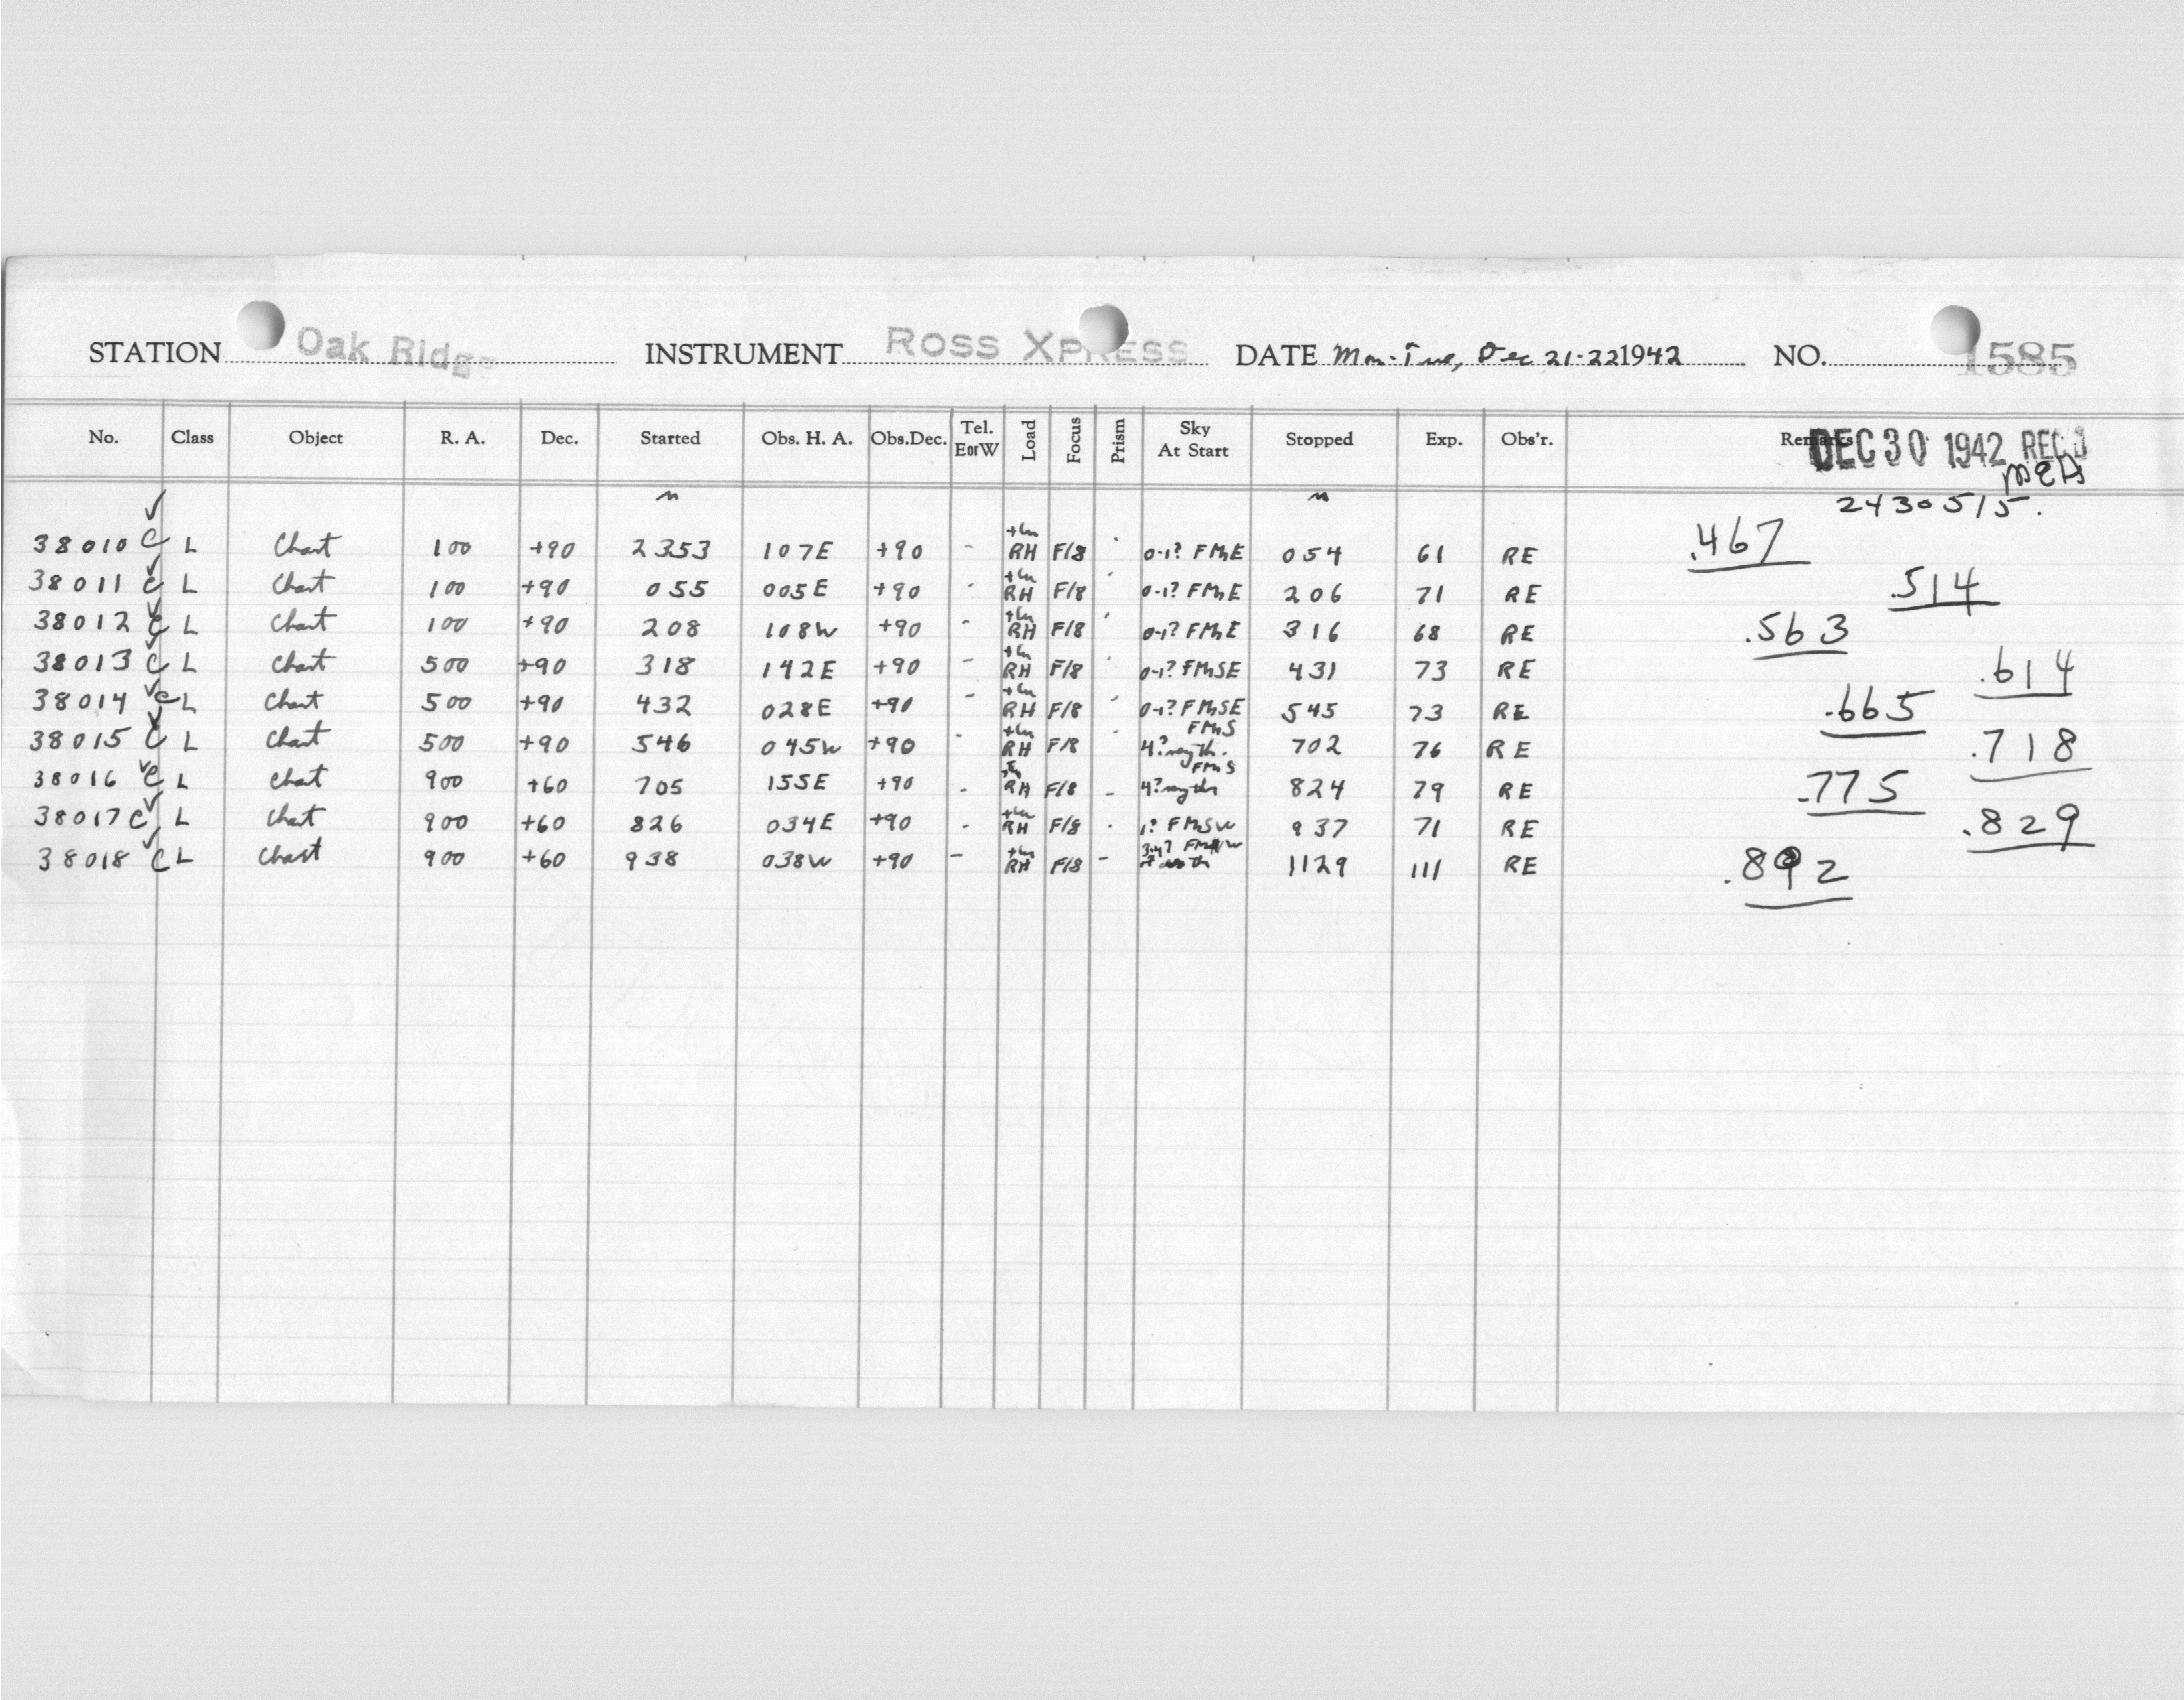 STATION Oak Ridge INSTRUMENT ROSS XPRESS DATE Mon-Tue, Dec 21-22 1942 NO. 1585
No. Class Object R. A. Dec. Started Obs. H. A. Obs.Dec. Tel. EorW Load Focus Prism Sky At Start Stopped Exp. Obs'r. Remarks
DEC 30 1942 REC'D
2430515.
38010 C L Chart 100 +90 2353 107E +90 - RH F/8 0-1? FMnE 054 61 RE .467
38011 C L Chart 100 +90 055 005E +90 - RH F/8 0-1? FMnE 206 71 RE .514
38012 C L Chart 100 +90 208 108W +90 - RH F/8 0-1? FMnE 316 68 RE .563
38013 C L Chart 500 +90 318 142E +90 - RH F/8 0-1? FMnSE 431 73 RE .614
38014 C L Chart 500 +90 432 028E +90 - RH F/8 0-1? FMnSE 545 73 RE .665
38015 C L Chart 500 +90 546 045W +90 - RH F/8 4? FMnS 702 76 RE .718
38016 C L Chart 900 +60 705 155E +90 - RH F/8 - 4? FMnS 824 79 RE .775
38017 C L Chart 900 +60 826 034E +90 - RH F/8 - 1? FMnSW 937 71 RE .829
38018 C L Chart 900 +60 938 038W +90 - RH F/8 - 1129 111 RE .892